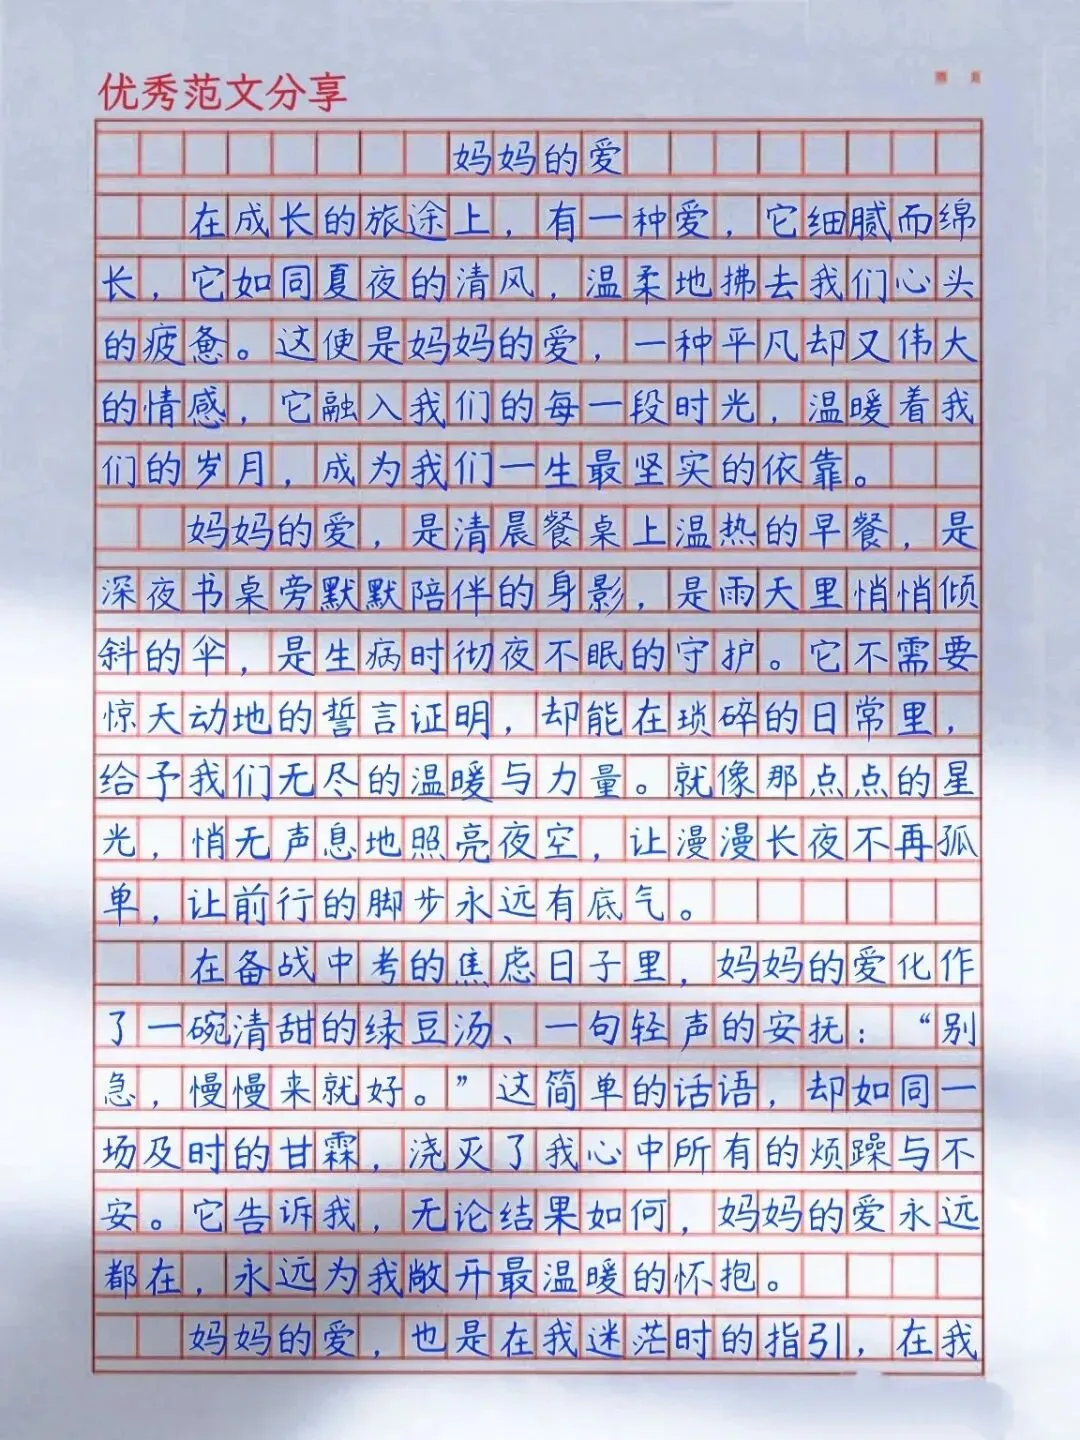 优秀范文分享
妈妈的爱
在成长的旅途上，有一种爱，它细腻而绵
长，它如同夏夜的清风，温柔地拂去我们心头
的疲惫。这便是妈妈的爱，一种平凡却又伟大
的情感，它融入我们的每一段时光，温暖着我
们的岁月，成为我们一生最坚实的依靠。
妈妈的爱，是清晨餐桌上温热的早餐，是
深夜书桌旁默默陪伴的身影，是雨天里悄悄倾
斜的伞，是生病时彻夜不眠的守护。它不需要
惊天动地的誓言证明，却能在琐碎的日常里，
给予我们无尽的温暖与力量。就像那点点的星
光，悄无声息地照亮夜空，让漫漫长夜不再孤
单，让前行的脚步永远有底气。
在备战中考的焦虑日子里，妈妈的爱化作
了一碗清甜的绿豆汤、一句轻声的安抚：“别
急，慢慢来就好。”这简单的话语，却如同一
场及时的甘霖，浇灭了我心中所有的烦躁与不
安。它告诉我，无论结果如何，妈妈的爱永远
都在，永远为我敞开最温暖的怀抱。
妈妈的爱，也是在我迷茫时的指引，在我